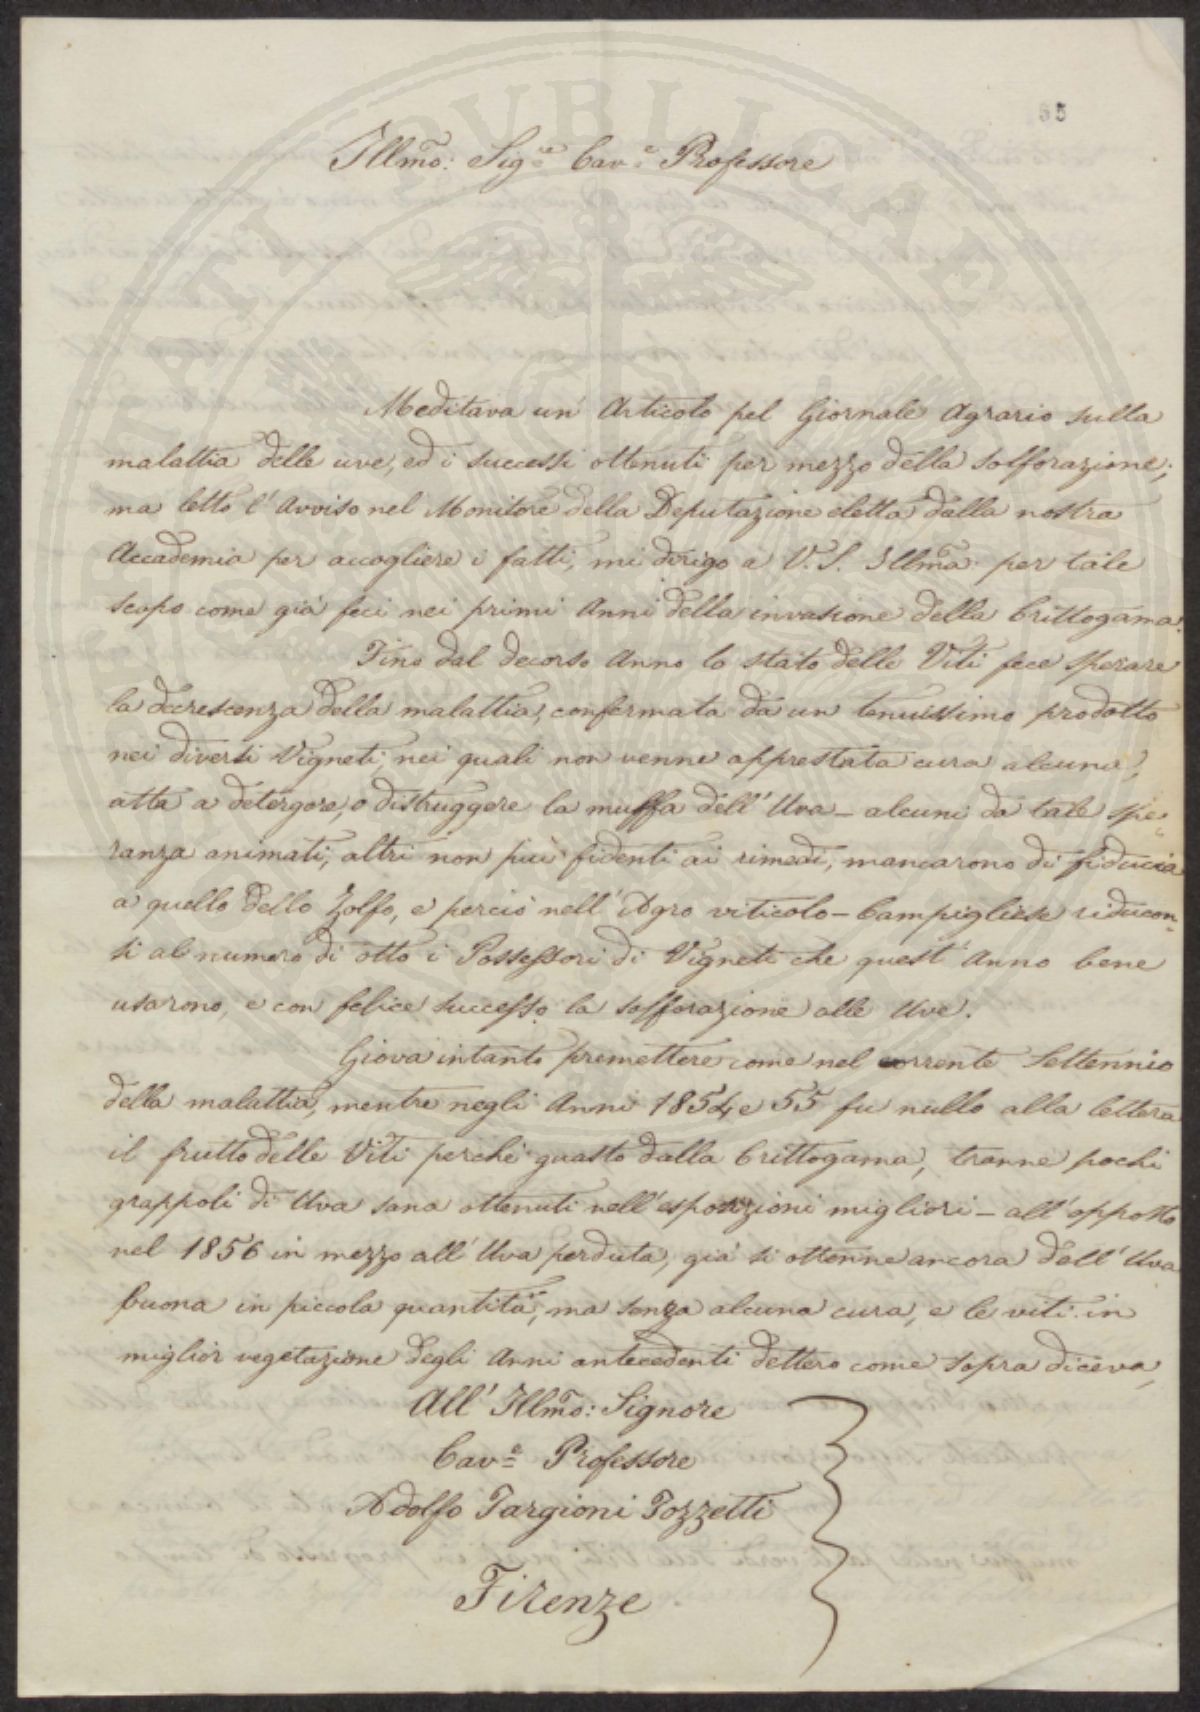 65
Illmo: Sigre Cave Professore
Meditava un Articolo pel Giornale Agrario sulla
malattia delle uve, ed i successi ottenuti per mezzo della solforazione;
ma letto l'Avviso nel Monitore della Deputazione eletta dalla nostra
Accademia per accogliere i fatti, mi dirigo a V. S. Illma: per tale
scopo come già feci nei primi Anni della invasione della Crittogama.
Fino dal decorso Anno lo stato delle Viti fece sperare
la decrescenza della malattia, confermata da un tenuissimo prodotto
nei diversi Vigneti, nei quali non venne apprestata cura alcuna,
atta a detergere, o distruggere la muffa dell'Uva – alcuni da tale spe-
ranza animati, altri non più fidenti ai rimedi, mancarono di fiducia
a quello dello Zolfo, e perciò nell'Agro viticolo – Campigliese riducon-
si al numero di otto i Possessori di Vigneti che quest'Anno bene
usarono, e con felice successo la solforazione alle Uve.
Giova intanto premettere come nel corrente Settennio
della malattia, mentre negli Anni 1854 e 55 fu nullo alla lettera
il frutto delle Viti perché guasto dalla Crittogama, tranne pochi
grappoli di Uva sana ottenuti nell'esposizioni migliori – all'opposto
nel 1856 in mezzo all'Uva perduta, già si ottenne ancora dell'Uva
buona in piccola quantità, ma senza alcuna cura, e le viti in
miglior vegetazione degli Anni antecedenti dettero come sopra diceva,
All'Illmo: Signore
Cave Professore
Adolfo Targioni Tozzetti
Firenze